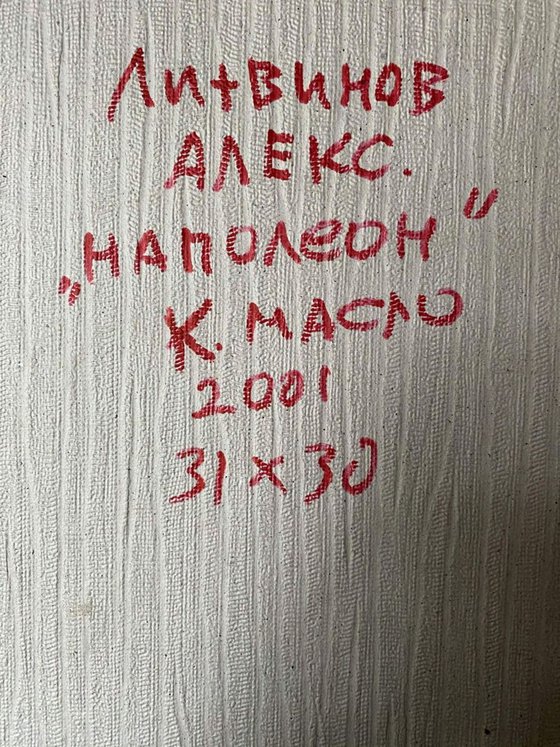 Литвинов
АЛЕКС.
„НАПОЛЕОН"
К. МАСЛО
2001
31 х 30